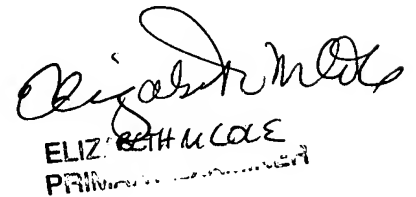 Elizabeth M Cole
ELIZABETH M COLE
PRIMARY EXAMINER